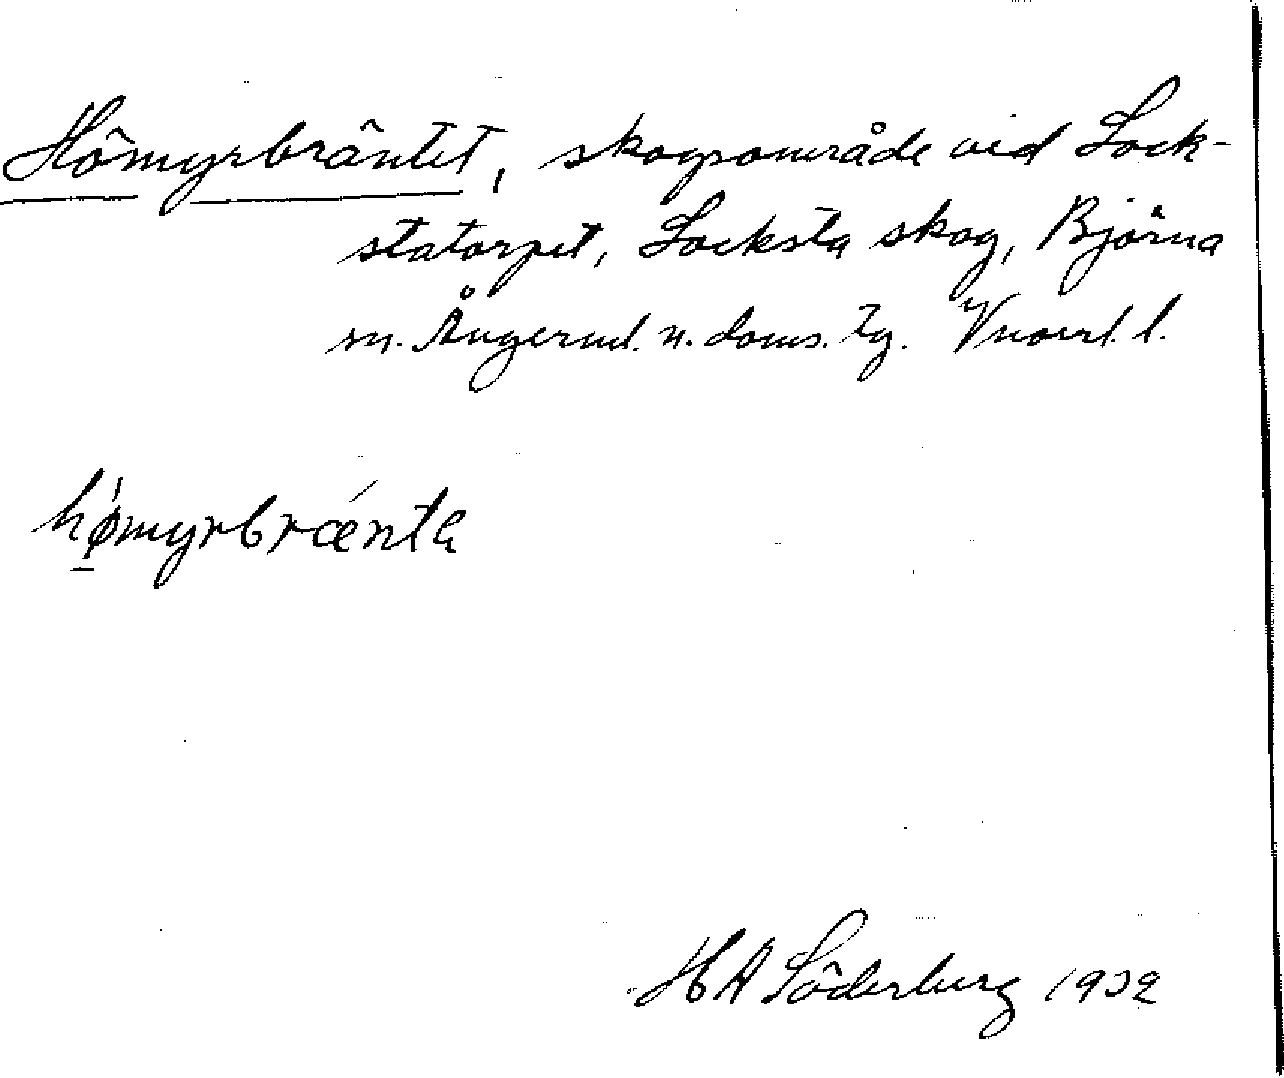 Hömyrbräntet, skogsområde vid Lock-
statorpet, Locksta skog, Björna
sn. Ångerml. n. doms. tg. Vnorrl. l.
hømyrbrænta
HA Söderberg 1932